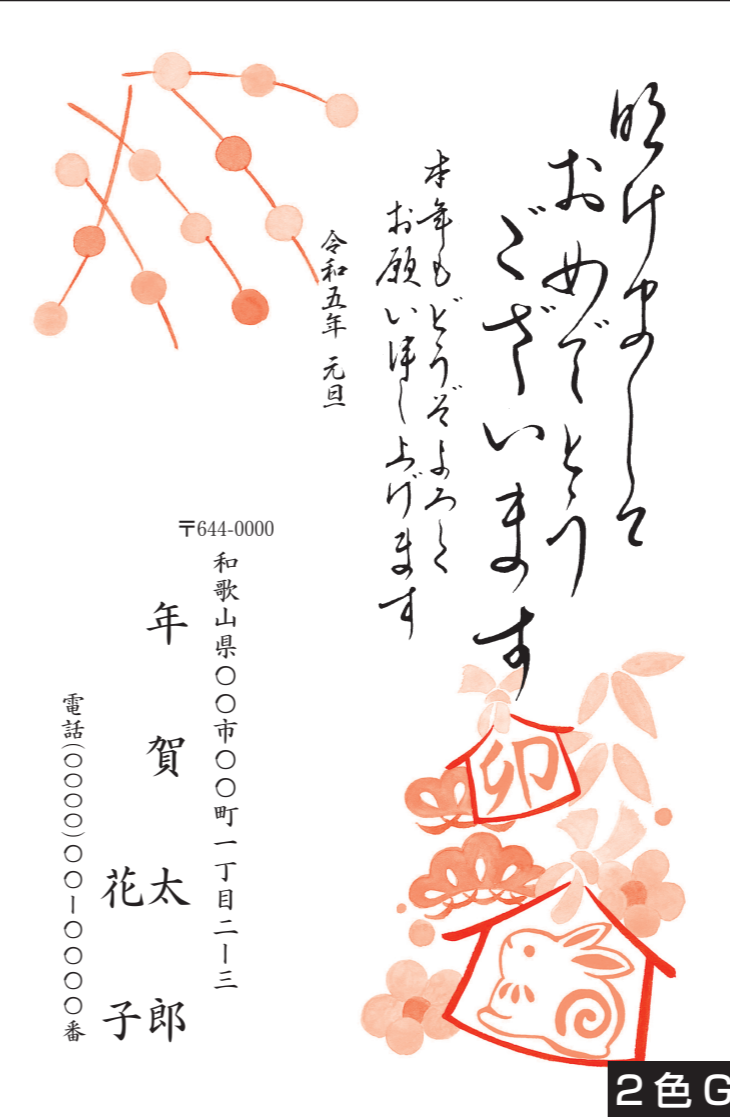 明けまして
おめでとう
ございます
本年もどうぞよろしく
お願い申し上げます
令和五年 元旦
〒644-0000
和歌山県〇〇市〇〇町一丁目二ー三
年賀太郎
花子
電話(〇〇〇〇)〇〇ー〇〇〇〇番
卯
2色G